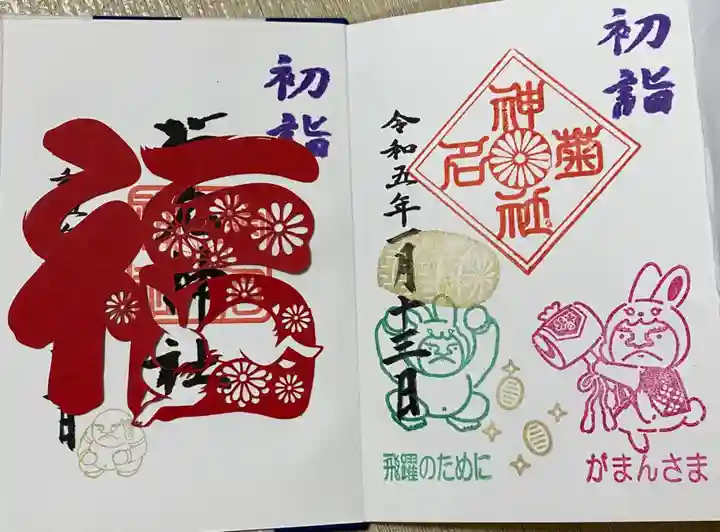 初詣
福
神社
初詣
神社
菊名
令和五年一月十三日
飛躍のために
がまんさま